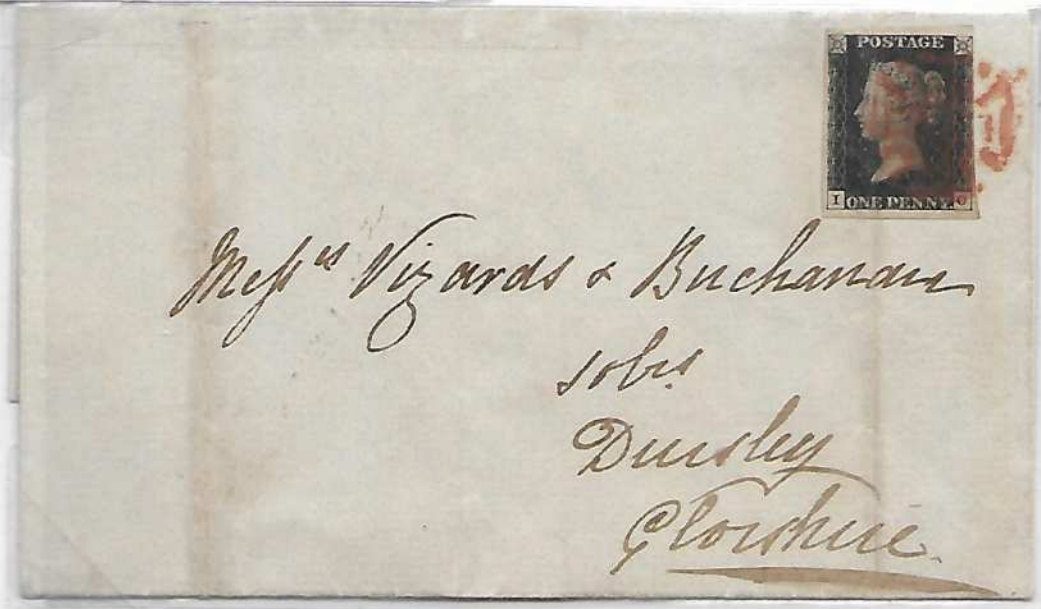 POSTAGE
I ONE PENNY. C
Messrs Vizards & Buchanan
solrs
Dursley
Glorshire